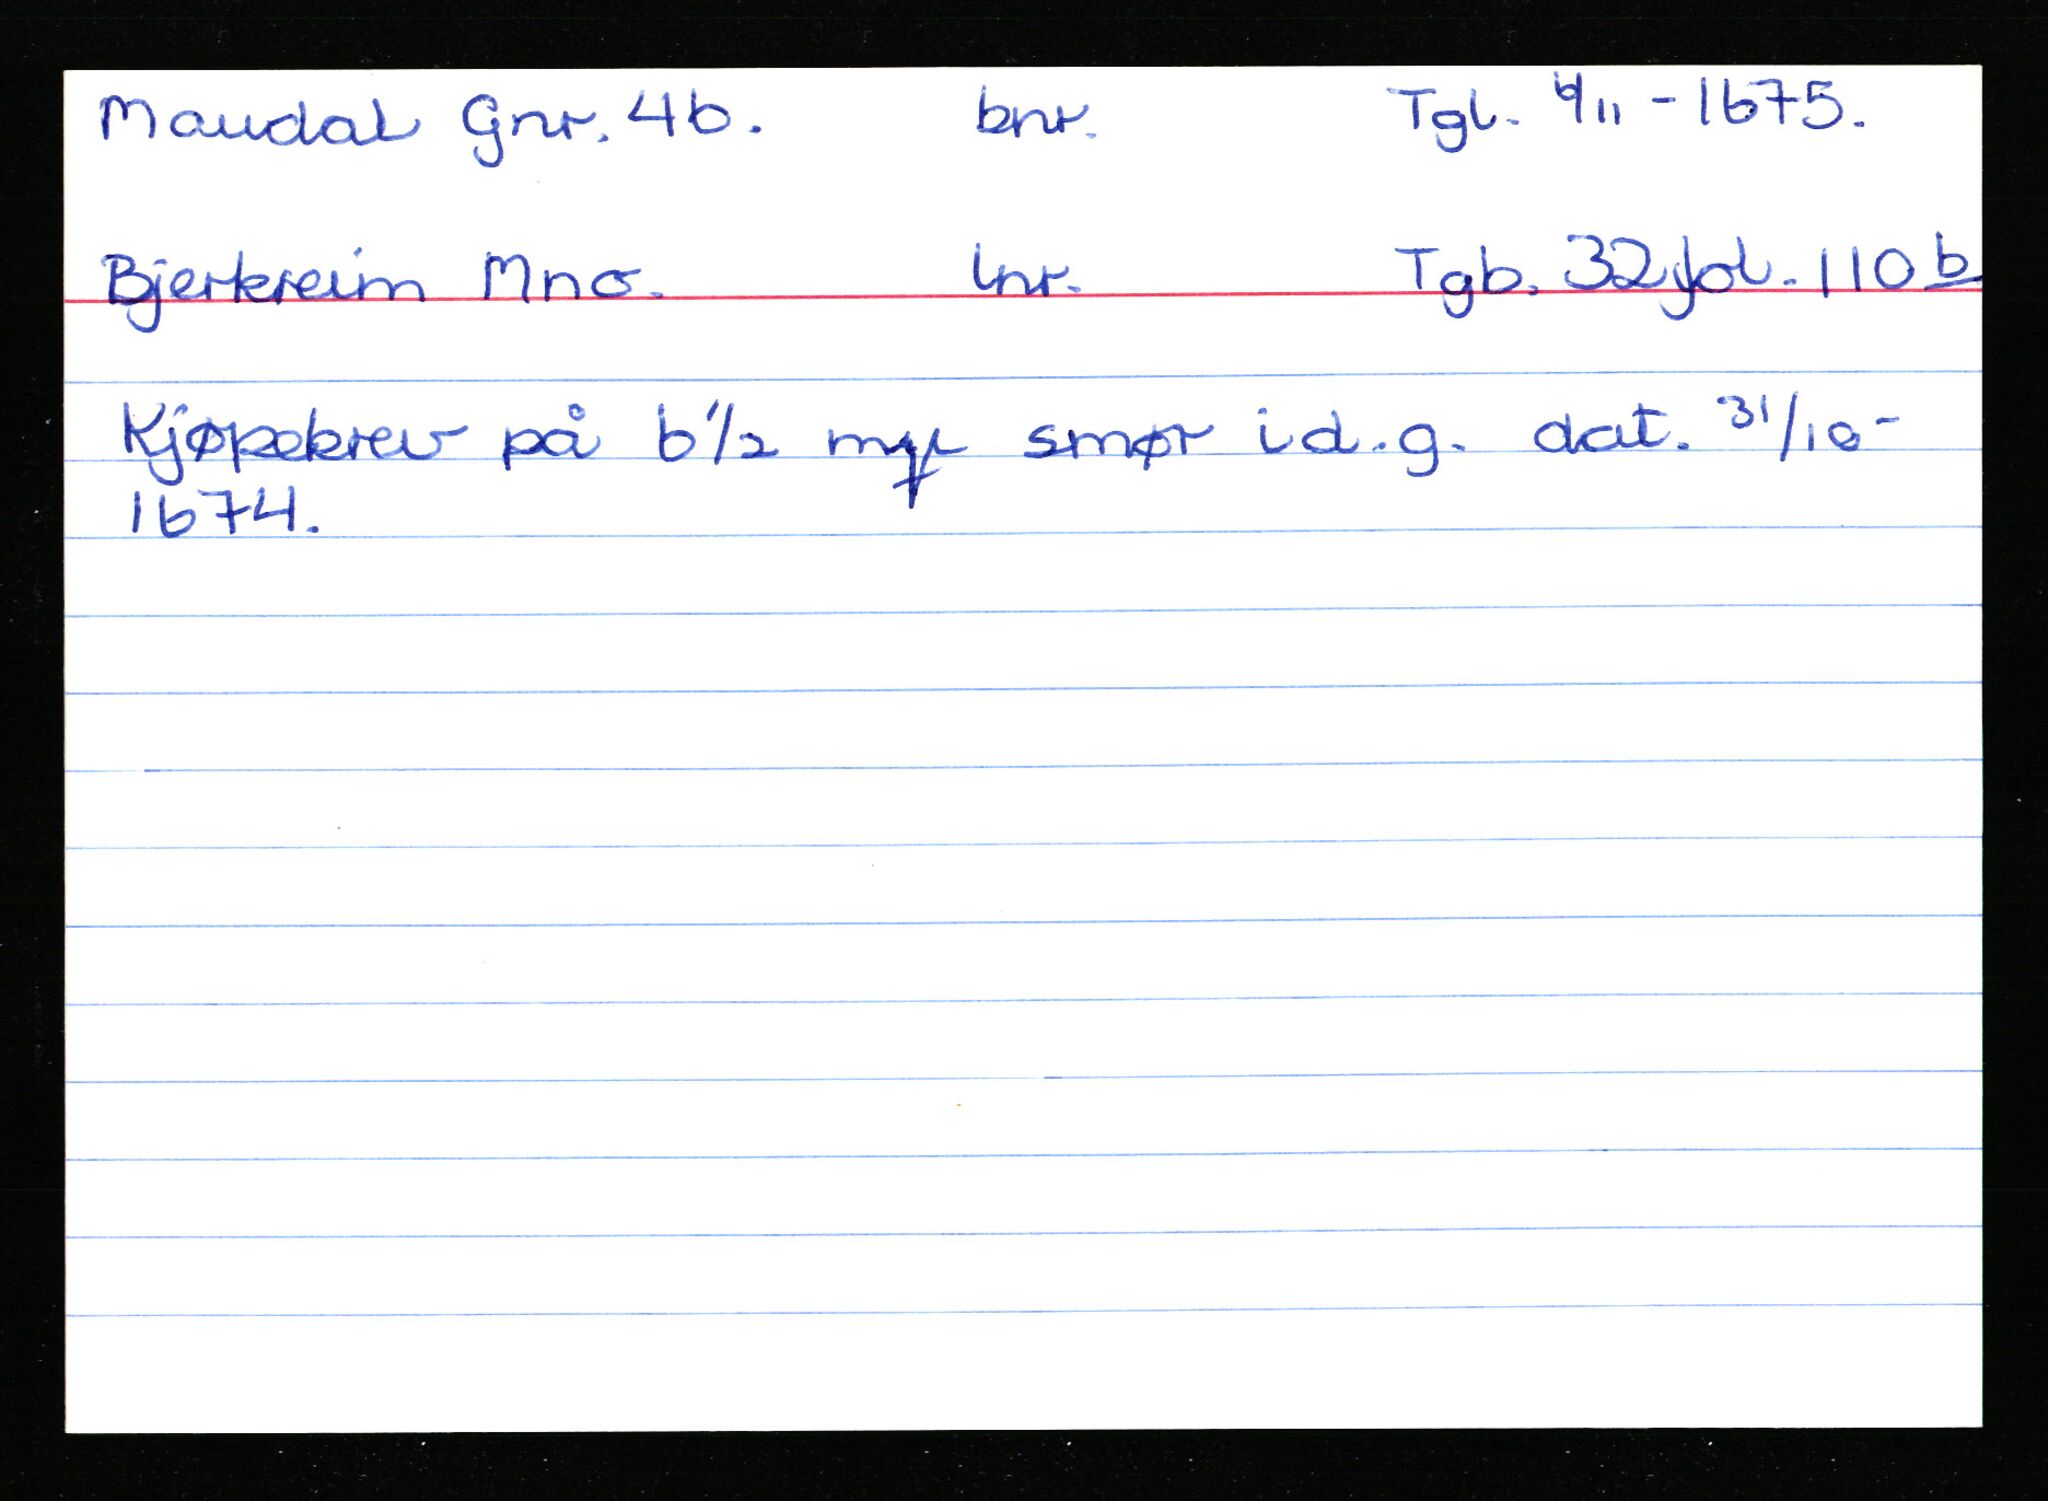 Maudal Gnr. 46. bnr. Tgl. 4/11 - 1675.
Bjerkreim Mno. lnr. Tgb. 32 fol. 110 b
Kjøpebrev på 6 1/2 smør i d.g. dat. 31/10-
1674.